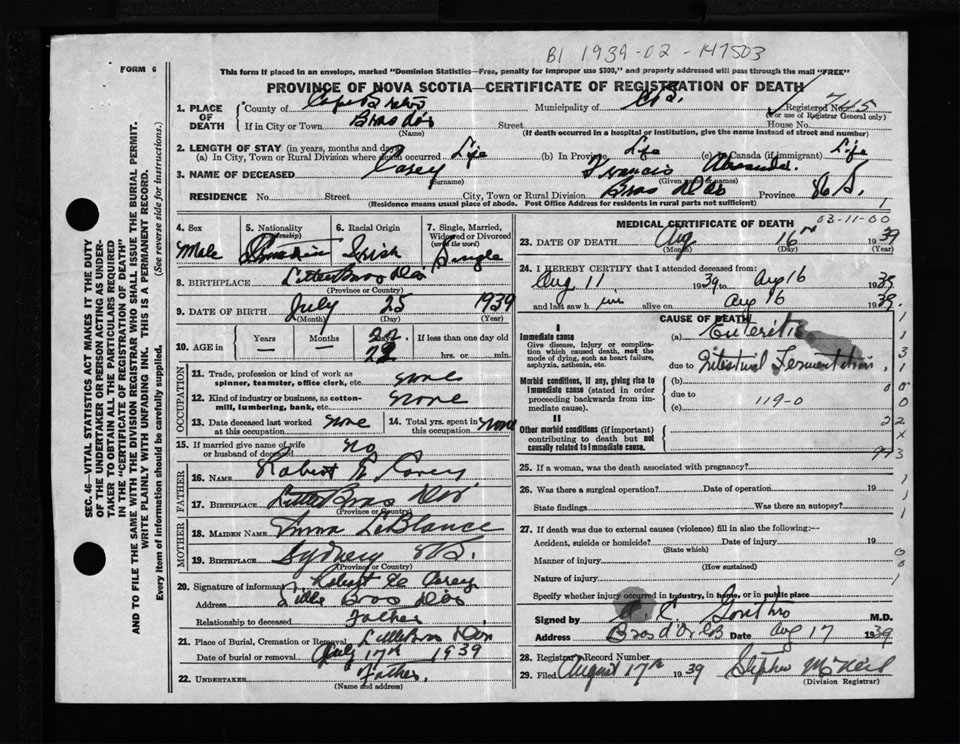 B1 1939-02-147503
FORM 6
This form if placed in an envelope, marked "Dominion Statistics—Free, penalty for improper use $300," and properly addressed will pass through the mail "FREE"
PROVINCE OF NOVA SCOTIA—CERTIFICATE OF REGISTRATION OF DEATH
1. PLACE OF DEATH County of Cape Breton Municipality of C.B. Registered No. 745
(For use of Registrar General only)
If in City or Town Bras d'Or Street House No.
(Name) (If death occurred in a hospital or institution, give the name instead of street and number)
2. LENGTH OF STAY (in years, months and days)
(a) In City, Town or Rural Division where death occurred Life (b) In Province Life (c) In Canada (if immigrant) Life
3. NAME OF DECEASED Corey Francis
(Surname) (Given name or names)
RESIDENCE No. Street City, Town or Rural Division Bras D'Or Province N.S. 1
(Residence means usual place of abode. Post Office Address for residents in rural parts not sufficient)
4. Sex Male
5. Nationality (Citizenship) Canadian
6. Racial Origin Irish
7. Single, Married, Widowed or Divorced (write the word) Single
8. BIRTHPLACE Little Bras Dor
(Province or Country)
9. DATE OF BIRTH July 25 1939
(Month) (Day) (Year)
10. AGE in Years — Months — Days 22 If less than one day old
hrs. or min.
OCCUPATION
11. Trade, profession or kind of work as spinner, teamster, office clerk, etc. none
12. Kind of industry or business, as cotton-mill, lumbering, bank, etc. none
13. Date deceased last worked at this occupation none 14. Total yrs. spent in this occupation none
15. If married give name of wife or husband of deceased no
FATHER
16. NAME Robert E. Corey
17. BIRTHPLACE Little Bras Dor
(Province or Country)
MOTHER
18. MAIDEN NAME Anna LeBlance
19. BIRTHPLACE Sydney N.S.
(Province or Country)
20. Signature of informant Robert Corey
Address Little Bras Dor
Relationship to deceased Father
21. Place of Burial, Cremation or Removal Little Bras Dor
Date of burial or removal July 17th 1939
22. UNDERTAKER Father.
(Name and address)
MEDICAL CERTIFICATE OF DEATH
03-11-00
23. DATE OF DEATH Aug 16th 1939
(Month) (Day) (Year)
24. I HEREBY CERTIFY that I attended deceased from:
Aug 11 1939 to Aug 16 1939
and last saw him alive on Aug 16 1939.
CAUSE OF DEATH
I
Immediate cause (a) Enteritis
Give disease, injury or complication which caused death, not the mode of dying, such as heart failure, asphyxia, asthenia, etc.
due to Intestinal Fermentation
Morbid conditions, if any, giving rise to immediate cause (stated in order proceeding backwards from immediate cause). (b)
due to
(c) 119-0
II
Other morbid conditions (if important) contributing to death but not causally related to immediate cause.
25. If a woman, was the death associated with pregnancy?
26. Was there a surgical operation? Date of operation 19
State findings Was there an autopsy?
27. If death was due to external causes (violence) fill in also the following:—
Accident, suicide or homicide? Date of injury 19
(State which)
Manner of injury
(How sustained)
Nature of injury
Specify whether injury occurred in industry, in home, or in public place
Signed by M.D.
Address Bras d'Or CB Date Aug 17 1939
28. Registrar's Record Number
29. Filed August 17th 1939 Stephen McNeil
(Division Registrar)
SEC. 46—VITAL STATISTICS ACT MAKES IT THE DUTY
OF THE UNDERTAKER OR PERSON ACTING AS UNDER-
TAKER TO OBTAIN ALL THE PARTICULARS REQUIRED
IN THE "CERTIFICATE OF REGISTRATION OF DEATH"
AND TO FILE THE SAME WITH THE DIVISION REGISTRAR WHO SHALL ISSUE THE BURIAL PERMIT.
WRITE PLAINLY WITH UNFADING INK. THIS IS A PERMANENT RECORD.
Every item of information should be carefully supplied. (See reverse side for instructions).